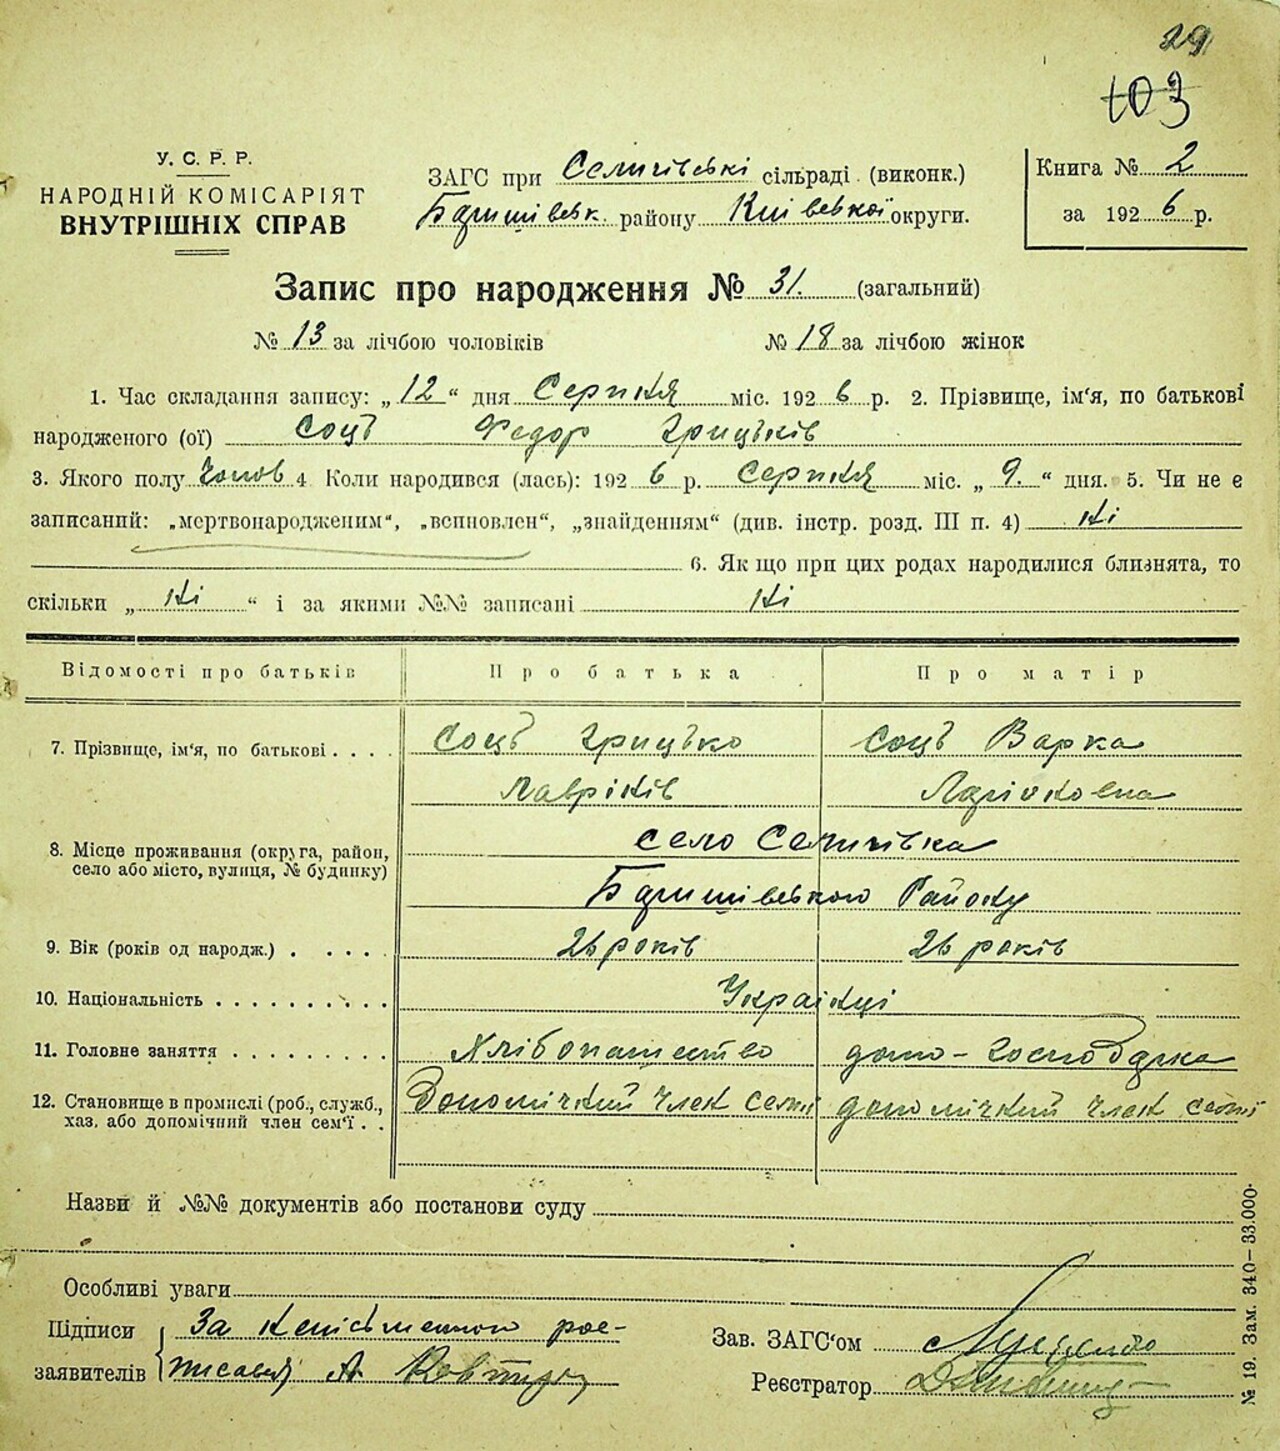 29
103
У. С. Р. Р.
НАРОДНІЙ КОМІСАРІЯТ
ВНУТРІШНІХ СПРАВ
ЗАГС при Селичівські сільраді (виконк.)
Баришівськ. району Київської округи.
Книга № 2
за 1926 р.
Запис про народження № 31. (загальний)
№ 13 за лічбою чоловіків № 18 за лічбою жінок
1. Час складання запису: „12“ дня Серпня міс. 1926 р. 2. Прізвище, ім‘я, по батькові
народженого (ої) Соць Федор Грицьків
3. Якого полу Чолов 4 Коли народився (лась): 1926 р. Серпня міс. „9.“ дня. 5. Чи не є
записаний: „мертвонародженим“, „всиновлен“, „знайденням“ (див. інстр. розд. III п. 4) Ні
6. Як що при цих родах народилися близнята, то
скільки „Ні“ і за якими №№ записані Ні
Відомості про батьків Про батька Про матір
7. Прізвище, ім‘я, по батькові . . . . Соць Грицько Соць Варка
Лавріків
8. Місце проживання (округа, район, село Селичівка
село або місто, вулиця, № будинку) Баришівського Району
9. Вік (років од народж.) . . . . . 26 років 26 років
10. Національність . . . . . . . . . . Українці
11. Головне заняття . . . . . . . . . Хлібопашество домо-господарка
12. Становище в промислі (роб., служб., Допомічний член семї допомічний член семї
хаз. або допомічний член сем‘ї . .
Назви й №№ документів або постанови суду
Особливі уваги
Підписи За неписьменного рос-
заявителів писався А
Зав. ЗАГС‘ом
Реєстратор
№ 19. Зам. 340—33.000.